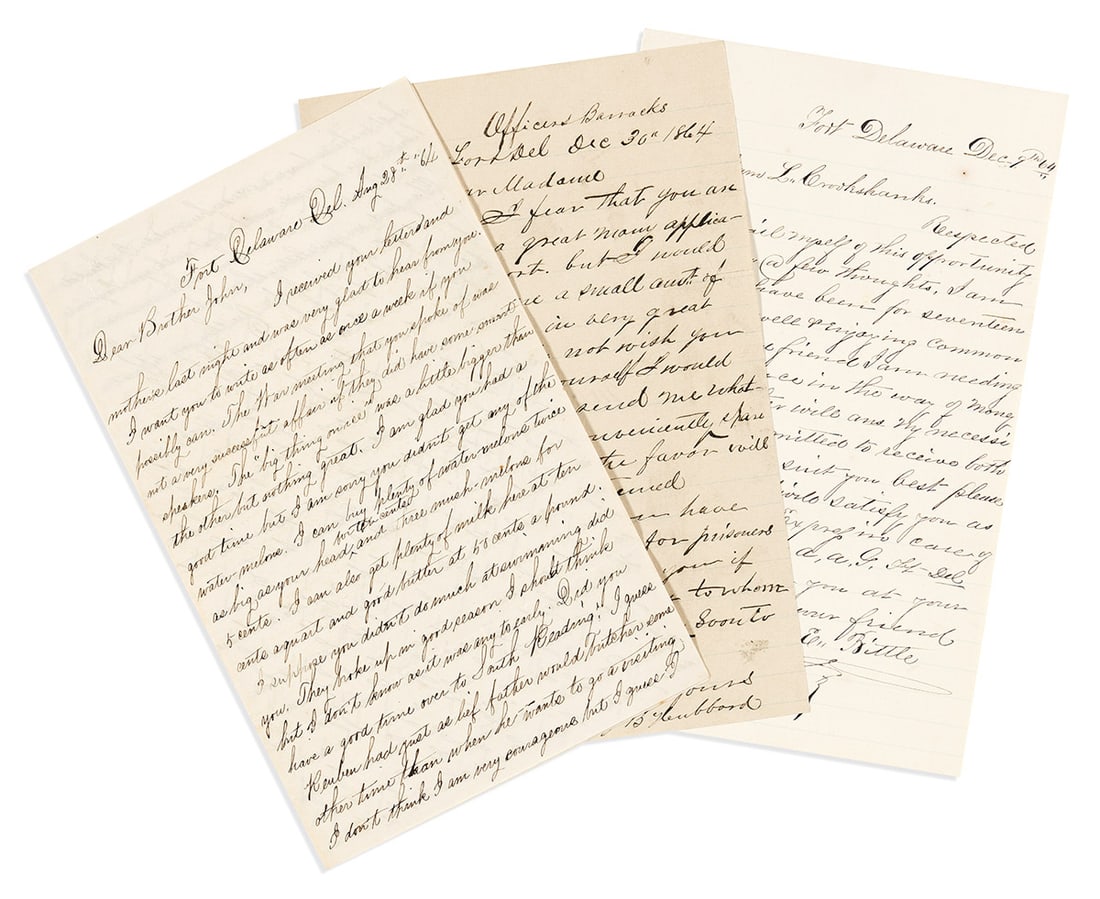 Fort Delaware Del. Aug 28th "64
Dear Brother John,
I received your letters and
mother's last night and was very glad to hear from you.
I want you to write as often as once a week if you
possibly can. The War meeting that you spoke of was
not a very successful affair if they did have some smart
speakers. The "big thing on ice" was a little bigger than
the other but nothing great. I am glad you had a
good time but I am sorry you didn't get any of the
water-melons. I can buy plenty of water-melons twice
as big as your head for ten cents and three mush-melons for
5 cents. I can also get plenty of milk here at ten
cents a quart and good butter at 50 cents a pound.
I suppose you didn't do much at swimming did
you. They broke up in good season I should think
but I don't know as it was any to early. Did you
have a good time over to South Reading? I guess
Reuben had just as lief father would butcher some
other time than when he wants to go a visiting
I don't think I am very courageous but I guess I
Officers Barracks
Fort Del Dec 30th 1864
Madame
I fear that you are
a great many applica-
but I would
a small amt. of
in very great
not wish your
yourself I would
send me what-
conveniently spare
the favor will
have
for prisoners
you if
to whom
Soon to
yours
B Hubbard
Fort Delaware Dec. 9th 64
L. Crookshanks.
Respected
myself of this opportunity
a few thoughts. I am
have been for seventeen
well & enjoying common
friend I am needing
in the way of money
will ans my necessi
permitted to receive both
you best please
satisfy you as
care of
a, a. G. Ft Del
you at your
your friend
E. Bittle